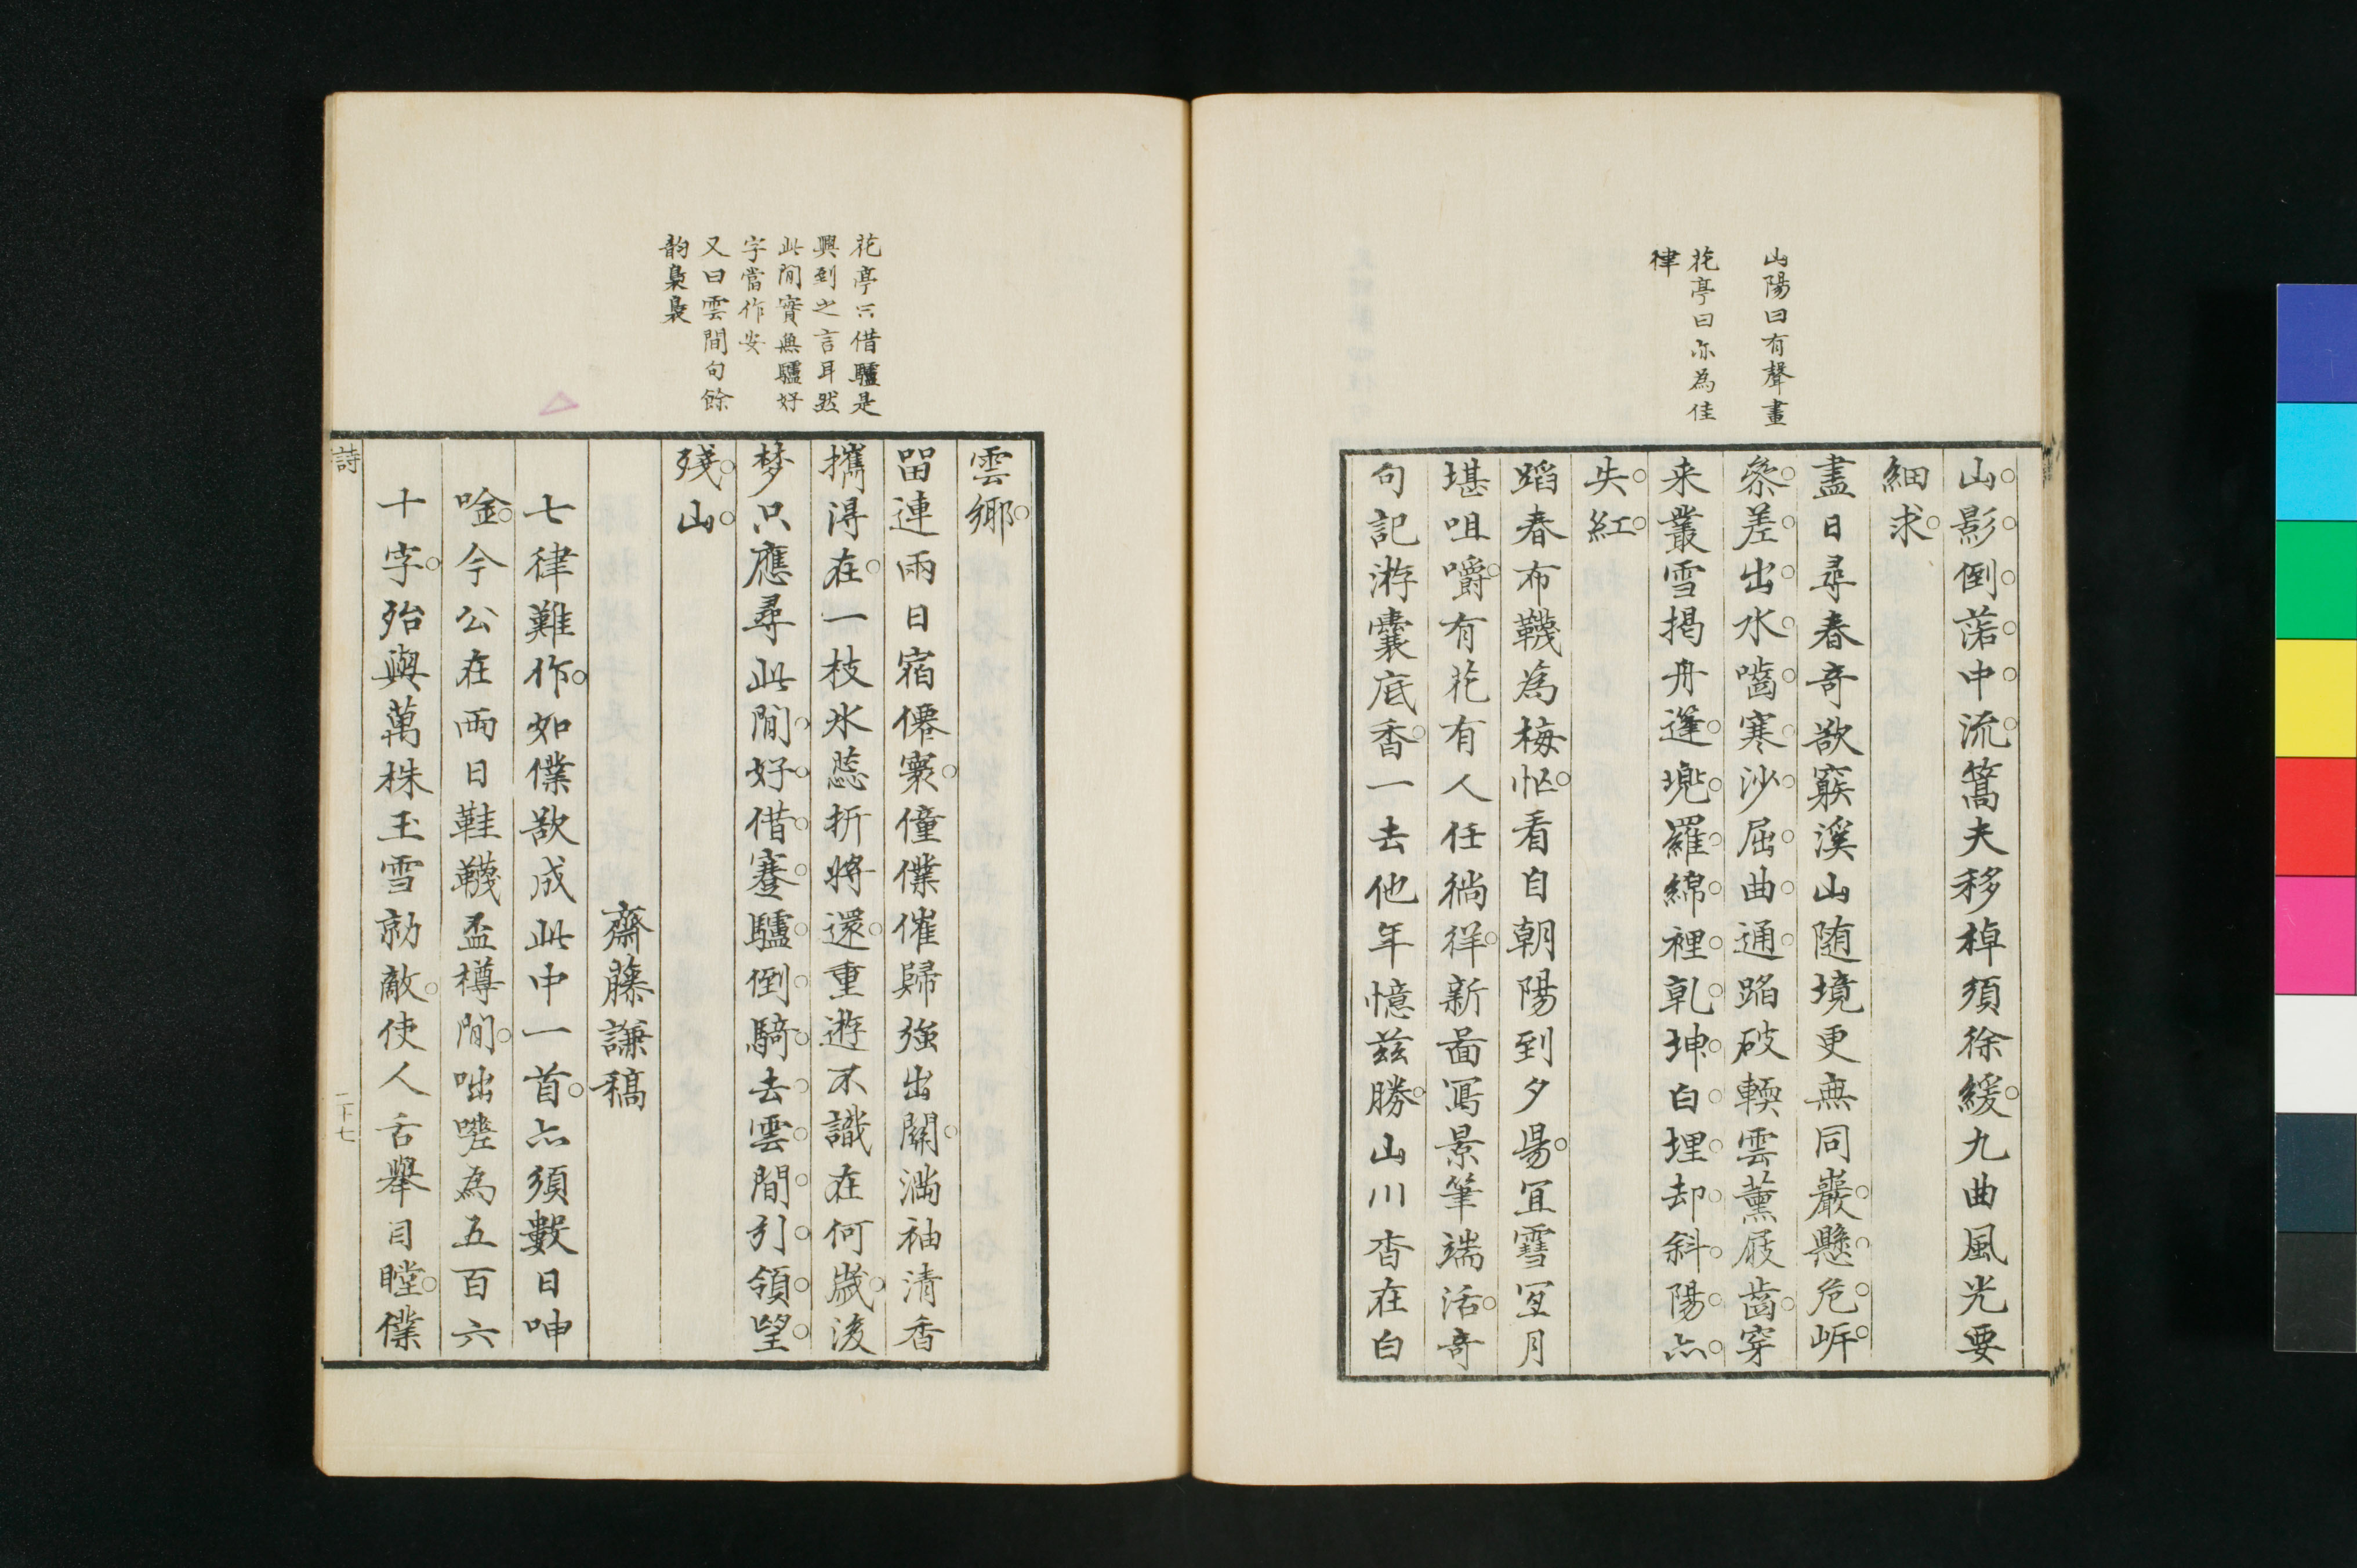 山陽曰有聲畫
花亭曰亦為佳
律
山影倒蘸中流篙夫移棹須徐緩九曲風光要
細求
盡日尋春奇欲竅溪山随境更無同巖懸危㟁
叅差出水嚙寒沙屈曲通踏破輭雲薫屐齒穿
来叢雪揭舟蓬兠羅綿裡乹坤白埋却斜陽亦
失紅
蹈春布韈為梅忙看自朝陽到夕昜冝霽冝月
堪咀嚼有花有人任徜徉新啚寫景筆端活奇
句記游囊底香一去他年憶兹勝山川杳在白
花亭只借驢是
興到之言耳然
此間實無驢好
字當作安
又曰雲間句餘
韵裊裊
雲鄉
留連兩日宿僊窠僮僕催歸強出關満袖清香
攜淂在一枝氷蕊折將還重遊不識在何歳後
梦只應尋此間好借蹇驢倒騎去雲間引領望
殘山
齋藤謙稿
七律難作如僕欲成此中一首亦須數日呻
唫今公在兩日鞋韈盃樽間咄嗟為五百六
十字殆與萬株玉雪勍敵使人舌舉目瞠僕
詩
二十七